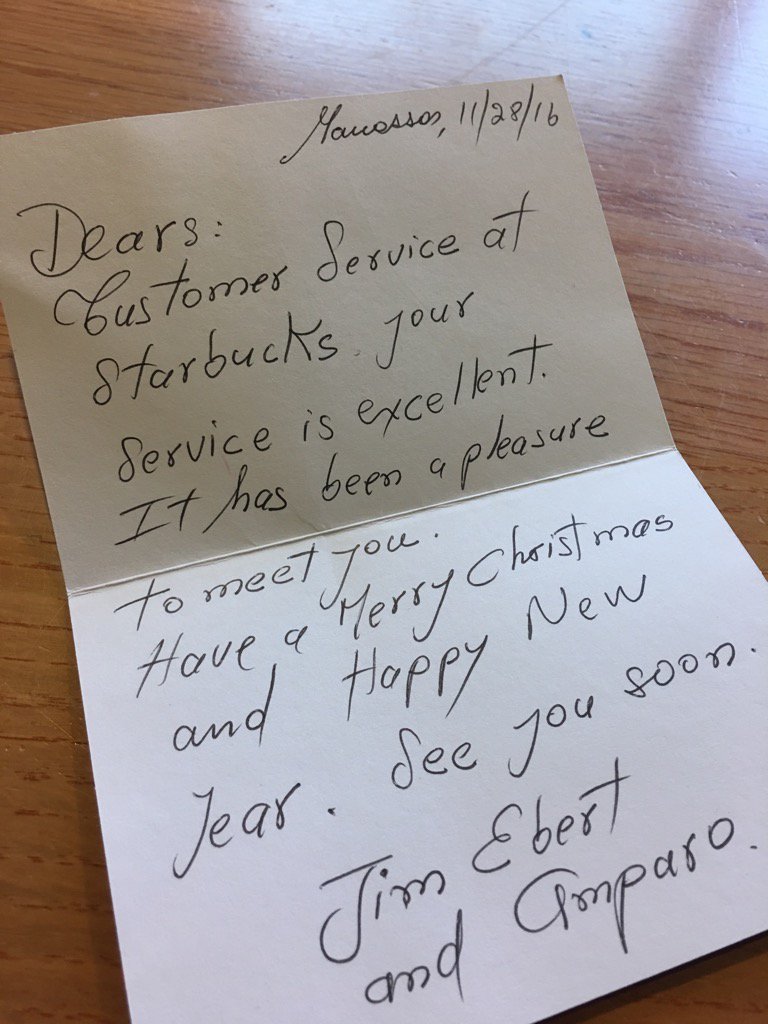 Manassas, 11/28/16
Dears:
Customer Service at
Starbucks. your
Service is excellent.
It has been a pleasure
to meet you.
Have a Merry Christmas
and Happy New
Year. See you soon.
Jim Ebert
and Amparo.